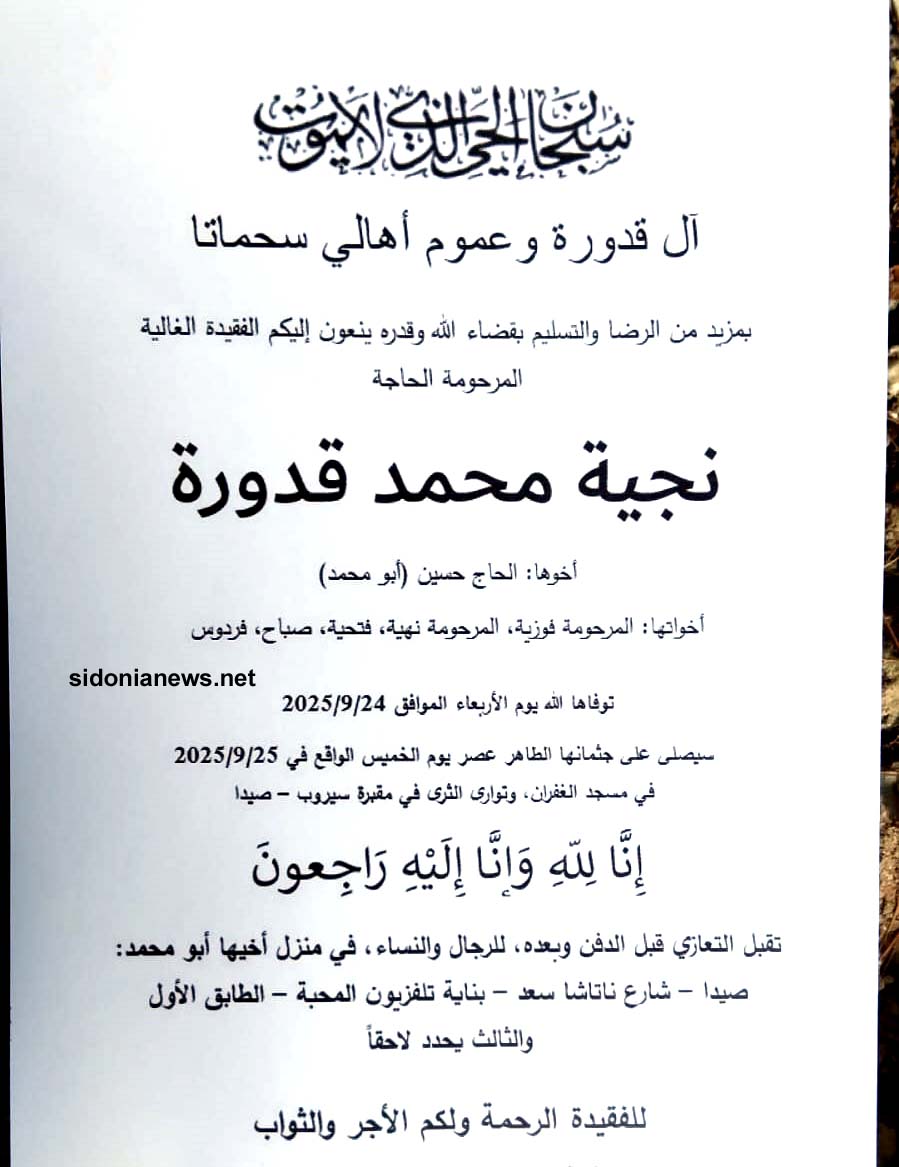 سبحان الحي الذي لا يموت
آل قدورة وعموم أهالي سحماتا
بمزيد من الرضا والتسليم بقضاء الله وقدره ينعون إليكم الفقيدة الغالية
المرحومة الحاجة
نجية محمد قدورة
أخوها: الحاج حسين (أبو محمد)
أخواتها: المرحومة فوزية، المرحومة نهية، فتحية، صباح، فردوس
sidonianews.net
توفاها الله يوم الأربعاء الموافق 2025/9/24
سيصلى على جثمانها الطاهر عصر يوم الخميس الواقع في 2025/9/25
في مسجد الغفران، وتوارى الثرى في مقبرة سيروب – صيدا
إِنَّا لِلّهِ وَإِنَّا إِلَيْهِ رَاجِعونَ
تقبل التعازي قبل الدفن وبعده، للرجال والنساء، في منزل أخيها أبو محمد:
صيدا – شارع ناتاشا سعد – بناية تلفزيون المحبة – الطابق الأول
والثالث يحدد لاحقاً
للفقيدة الرحمة ولكم الأجر والثواب